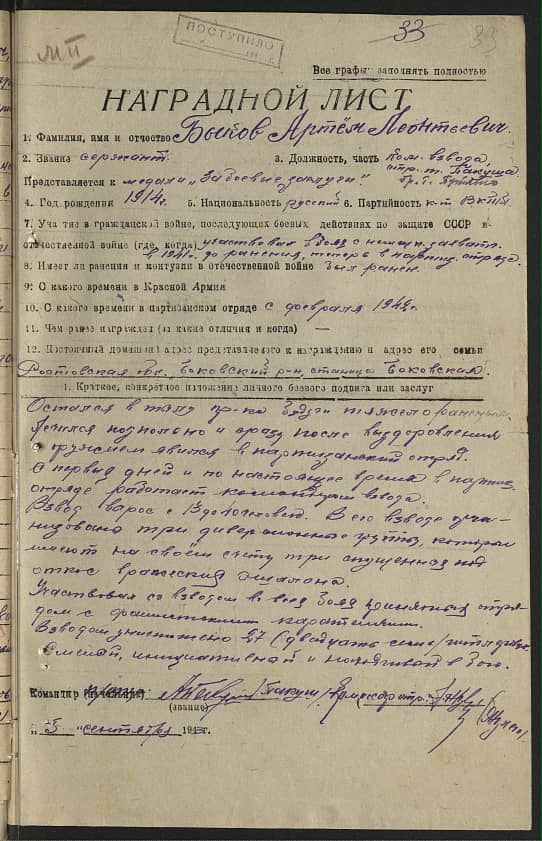 М II
ПОСТУПИЛО
33
33
Все графы заполнять полностью
НАГРАДНОЙ ЛИСТ
1. Фамилия, имя и отчество Быков Артём Леонтьевич.
2. Звание сержант. 3. Должность, часть Ком. взвода
отр. т. Пакуша
Представляется к медали "За боевые заслуги". бр. т.
4. Год рождения 1914г. 5. Национальность русский 6. Партийность к-т ВКП/б/
7. Участие в гражданской войне, последующих боевых действиях по защите СССР и
отечественной войне (где, когда) участвовал в боях с немецк. захват.
в 1941г. до ранения, теперь в партиз. отряде.
8. Имеет ли ранения и контузии в отечественной войне был ранен.
9. С какого времени в Красной Армии
10. С какого времени в партизанском отряде с февраля 1942г.
11. Чем ранее награжден (за какие отличия и когда) —
12. Постоянный домашний адрес представляемого к награждению и адрес его семьи
Ростовская обл., Боковский р-н, станица Боковская.
1. Краткое, конкретное изложение личного боевого подвига или заслуг
Остался в тылу пр-ка будучи тяжело раненым.
Лечился подпольно и сразу после выздоровления
с оружием явился в партизанский отряд.
С первых дней и по настоящее время в партиз.
отряде работает командиром взвода.
Взвод вырос с В его взводе орга-
низовано три диверсионные группы, которые
имеют на своём счету три спущенных под
откос вражеских эшелона.
Участвовал со взводом во всех боях отря-
дом с фашистскими карателями.
Взводом уничтожено 27 (двадцать семь) гитлеровц.
Смелый, инициативный и находчивый в бою.
Командир (Пакуш) Комиссар отр.
(звание)
"5" сентября 1943г.